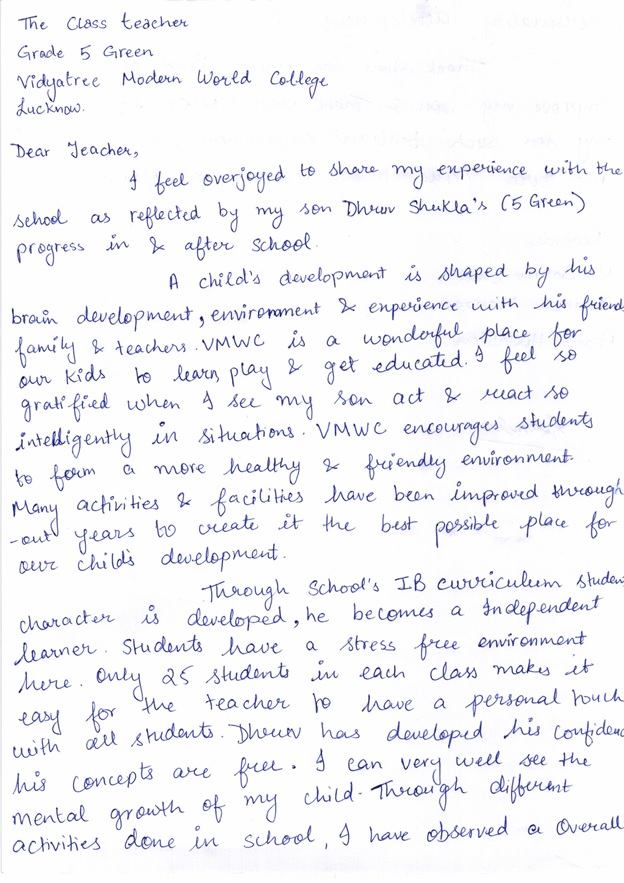 The Class teacher
Grade 5 Green
Vidyatree Modern World College
Lucknow.
Dear Teacher,
I feel overjoyed to share my experience with the
school as reflected by my son Dhruv Shukla's (5 Green)
progress in & after school.
A child's development is shaped by his
brain development, environment & experience with his friend
family & teachers. VMWC is a wonderful place for
our kids to learn, play & get educated. I feel so
gratified when I see my son act & react so
intelligently in situations. VMWC encourages students
to form a more healthy & friendly environment.
Many activities & facilities have been improved through
-out years to create it the best possible place for
our child's development.
Through School's IB curriculum student
character is developed, he becomes a Independent
learner. Students have a stress free environment
here. Only 25 students in each class makes it
easy for the teacher to have a personal touch
with all students. Dhruv has developed his confidenc
his concepts are free. I can very well see the
mental growth of my child. Through different
activities done in school, I have observed a Overall